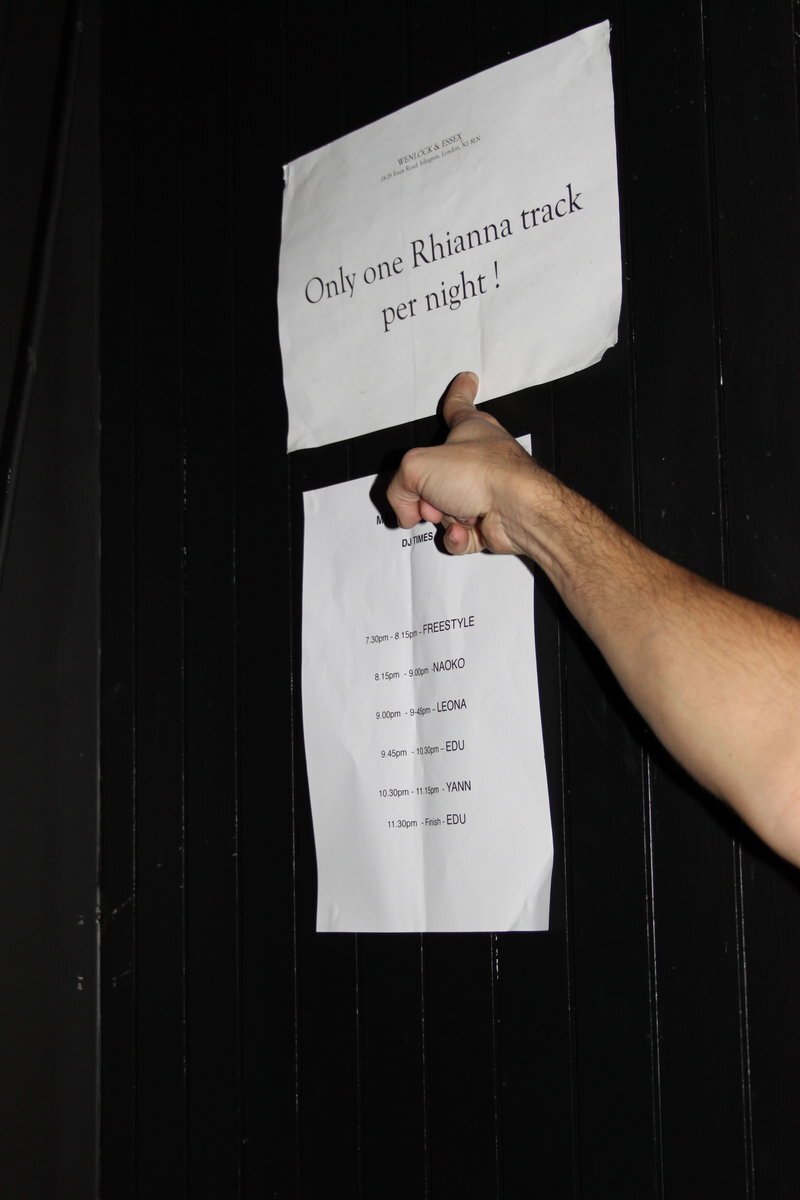 WENLOCK & ESSEX
18-26 Essex Road, Islington, London, N1 8LN
Only one Rhianna track
per night !
DJ TIMES
7.30pm - 8.15pm – FREESTYLE
8.15pm - 9.00pm -NAOKO
9.00pm - 9-45pm – LEONA
9.45pm - 10.30pm – EDU
10.30pm - 11.15pm - YANN
11.30pm - Finish - EDU